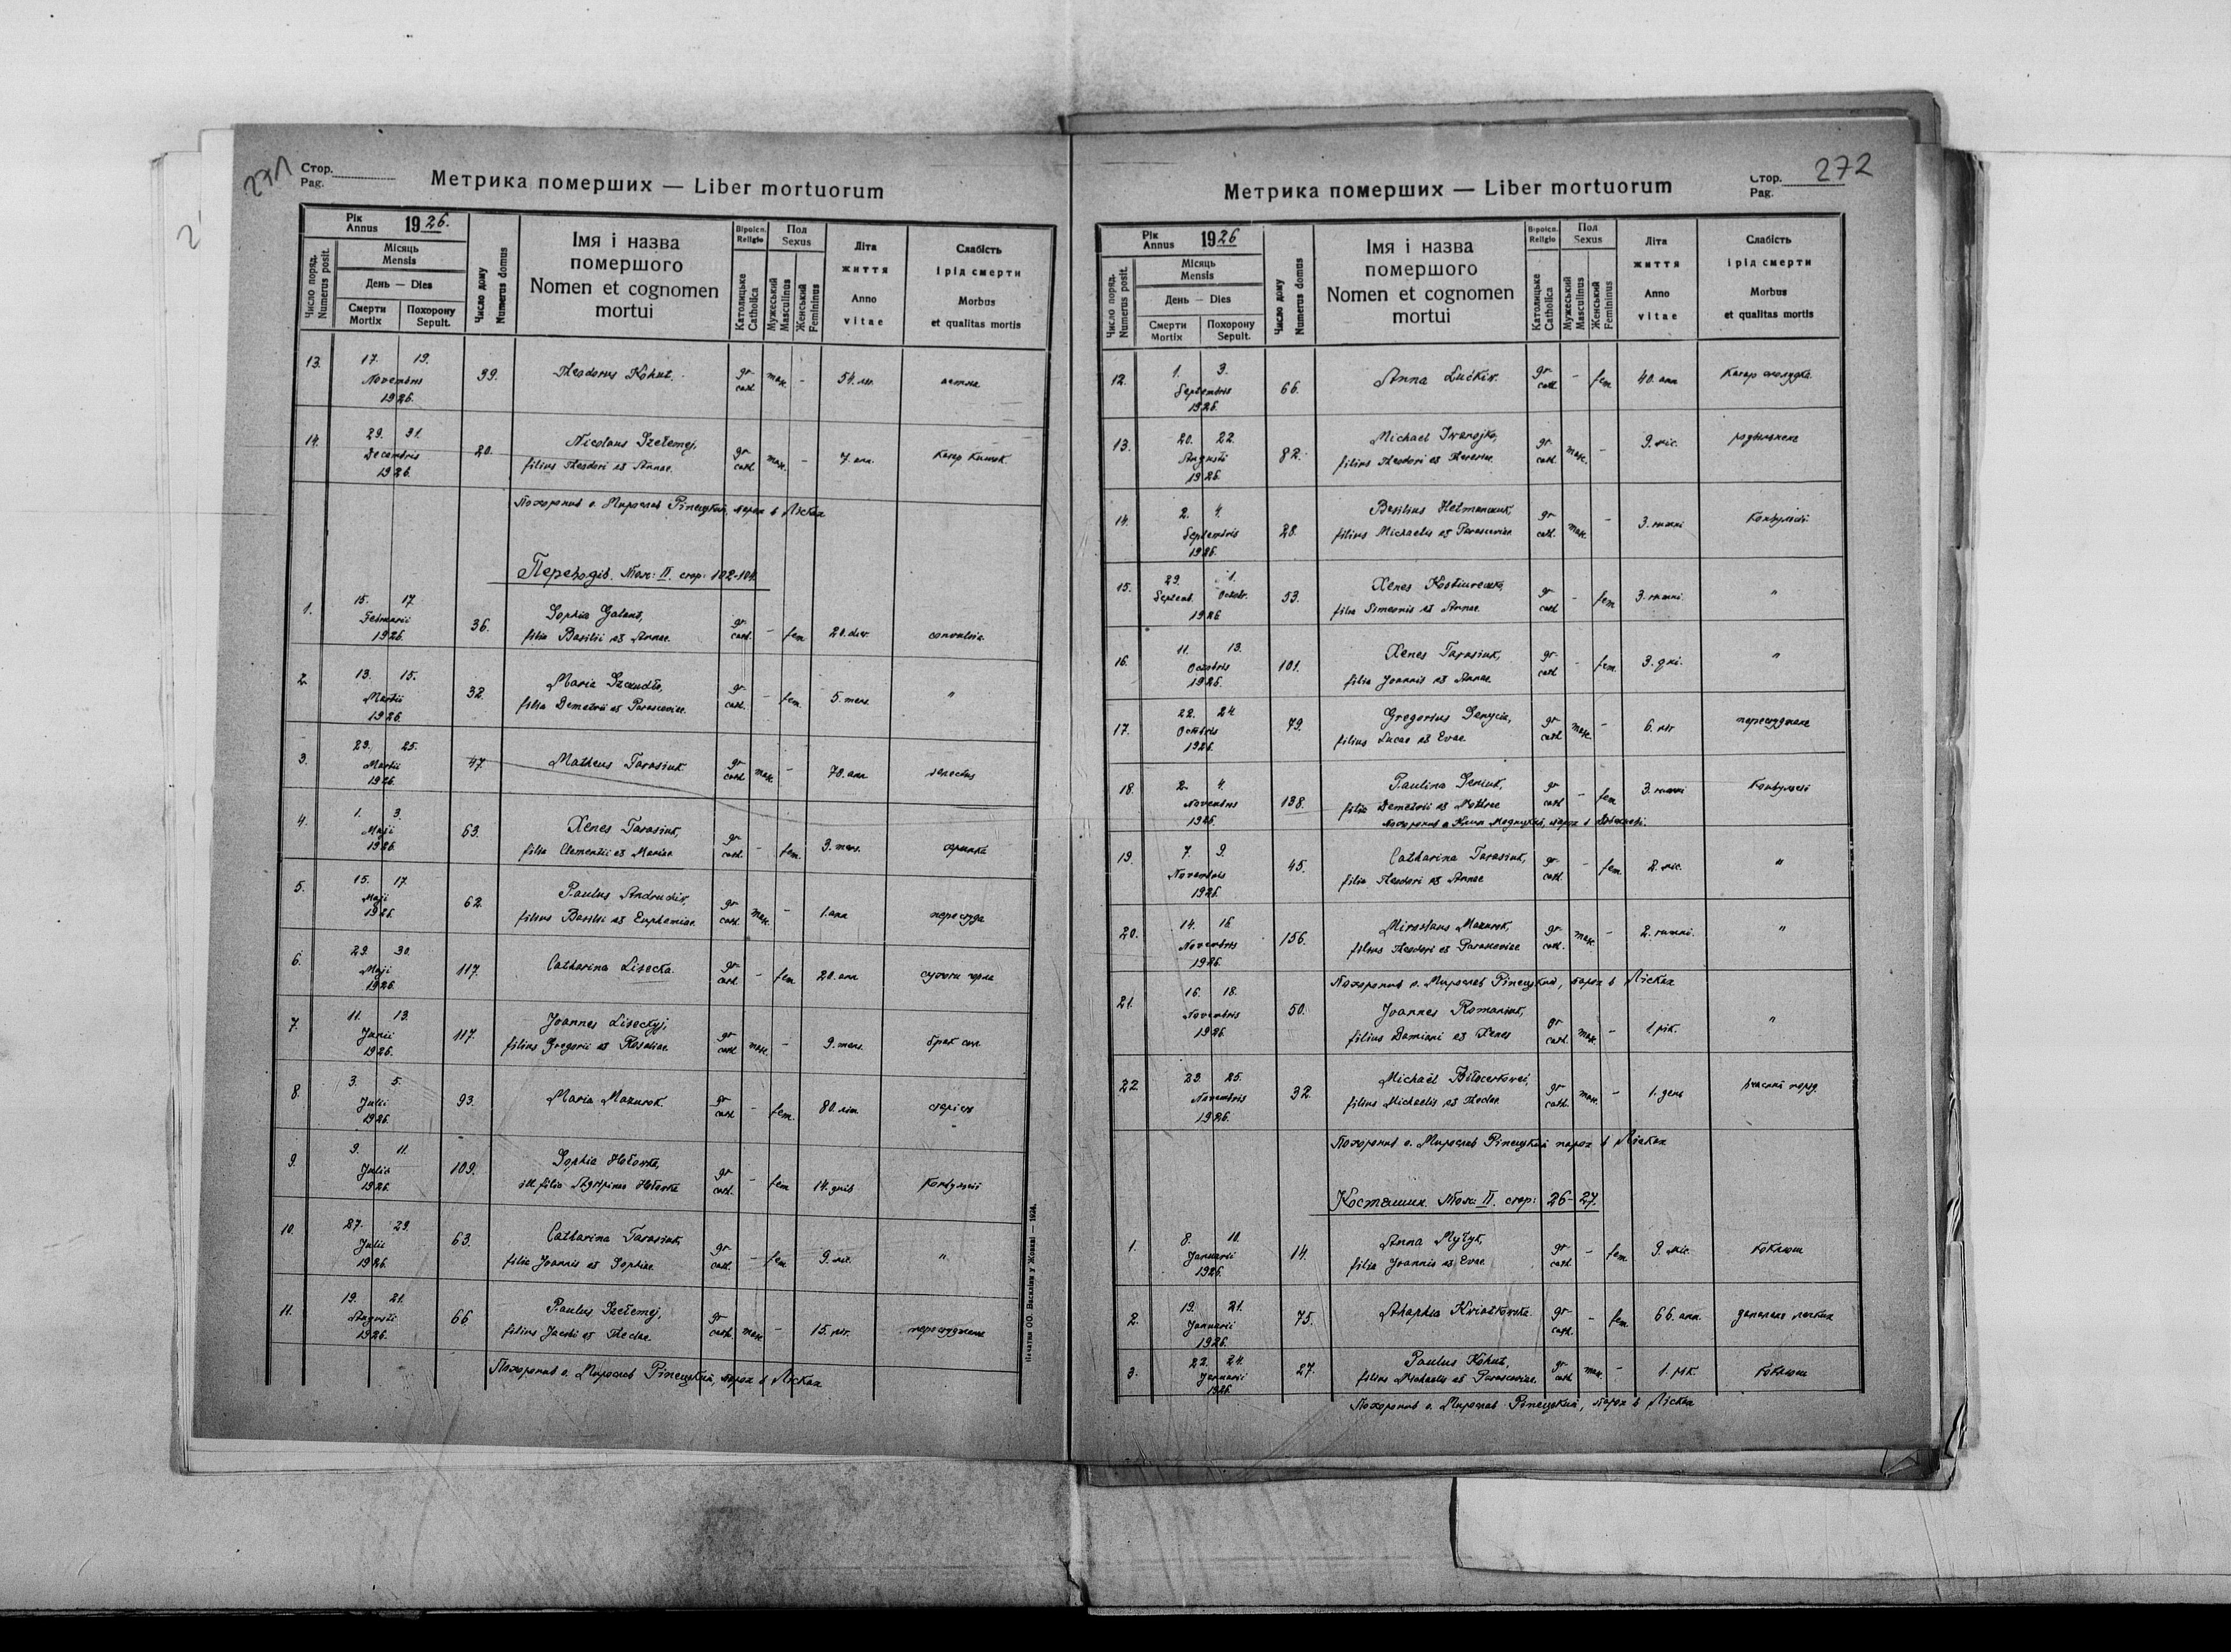 271
Стор.
Pag.
Метрика померших — Liber mortuorum
Рік
Annus 1926.
Число поряд.
Numerus posit.
Місяць
Mensis
День — Dies
Смерти
Mortix
Похорону
Sepult.
Число дому
Numerus domus
Імя і назва
помершого
Nomen et cognomen
mortui
Віроісп.
Religio
Католицьке
Catholica
Пол
Sexus
Мужеський
Masculinus
Женський
Femininus
Літа
життя
Anno
vitae
Слабість
і рід смерти
Morbus
et qualitas mortis
13. 17. 19. Novembris 1926. 99. Theodorus Kohut. gr. cath. masc. - 54. літ. астма
14. 29. 31. Decembris 1926. 20. Nicolaus Szełemej,
filius Theodori et Annae. gr. cath. masc. - 7. ann. катар кишок
Похоронив о. Мирослав Ріпецький, парох в Лісках
Переводів. Том: II. стор: 102-104.
1. 15. 17. Februarii 1926. 36. Sophia Galant,
filia Basilii et Annae. gr. cath. - fem. 20. dier. convulsia
2. 13. 15. Martii 1926. 32. Maria
filia Demetrii et Parasceviae. gr. cath. - fem. 5. mens. "
3. 23. 25. Martii 1926. 47. Matheus Tarasiuk gr. cath. masc. - 70. ann. senectus
4. 1. 3. Maji 1926. 63. Xenes Tarasiuk,
filia Clementii et Mariae gr. cath. - fem. 3. mens.
5. 15. 17. Maji 1926. 62. Paulus Andrudik,
filius Basilii et Euphemiae. gr. cath. masc. - 1. ann. пересуда
6. 29. 30. Maji 1926. 117. Catharina Lisecka. gr. cath. - fem. 20. ann. сухоти горла
7. 11. 13. Junii 1926. 117. Joannes Liseckyj,
filius Gregorii et Rosaliae. gr. cath. masc. - 9. mens. брак сил
8. 3. 5. Julii 1926. 93. Maria Mazurok. gr. cath. - fem. 80. літ. старість
9. 9. 11. Julii 1926. 109. Sophia Hołowka,
ill. filia Agripinae Hołowka gr. cath. - fem. 14. днів конвульсії
10. 27. 29. Julii 1926. 63. Catharina Tarasiuk,
filia Joannis et Sophiae. gr. cath. - fem. 9. міс. "
11. 19. 21. Augusti 1926. 66. Paulus Szełemej,
filius Jacobi et Theclae. gr. cath. masc. - 15. літ. пересудження
Похоронив о. Мирослав Ріпецький, парох в Лісках
Печатня ОО. Василіян у Жовкві — 1924.
272
Стор.
Pag.
Метрика померших — Liber mortuorum
Рік
Annus 1926
Число поряд.
Numerus posit.
Місяць
Mensis
День — Dies
Смерти
Mortix
Похорону
Sepult.
Число дому
Numerus domus
Імя і назва
помершого
Nomen et cognomen
mortui
Віроісп.
Religio
Католицьке
Catholica
Пол
Sexus
Мужеський
Masculinus
Женський
Femininus
Літа
життя
Anno
vitae
Слабість
і рід смерти
Morbus
et qualitas mortis
12. 1. 3. Septembris 1926. 66. Anna gr. cath. - fem. 40. ann. катар жолудка
13. 20. 22. Augusti 1926. 82. Michael Iwanojko,
filius Theodori et Theresiae. gr. cath. masc. - 9. міс.
14. 2. 4. Septembris 1926. 28. Basilius Hetmanczuk,
filius Michaelis et Parasceviae gr. cath. masc. - 3. конвульсії
15. 29. 1. Septemb. Octobr. 1926 53. Xenes
filia Simeonis et Annae. gr. cath. - fem. 3. "
16. 11. 13. Octobris 1926. 101. Xenes Tarasiuk,
filia Joannis et Annae. gr. cath. - fem. 3. дні. "
17. 22. 24. Octobris 1926. 79. Gregorius
filius Lucae et Evae. gr. cath. masc. - 6. літ пересудження
18. 2. 4. Novembris 1926. 138. Paulina Seniuk,
filia Demetrii et gr. cath. - fem. 3. конвульсії
Похоронив о. Клим
19. 7. 9. Novembris 1926. 45. Catharina Tarasiuk,
filia Theodori et Annae gr. cath. - fem. 2. міс. "
20. 14. 16. Novembris 1926. 156. Miroslaus Mazurok,
filius Theodori et Parasceviae gr. cath. masc. - 2. "
Похоронив о. Мирослав Ріпецький, парох в Лісках
21. 16. 18. Novembris 1926. 50. Joannes Romaniuk,
filius Damiani et Xenes gr. cath. masc. - 1. рік. "
22. 23. 25. Novembris 1926. 32. Michaël
filius Michaelis et Theclae. gr. cath. masc. - 1. день
Похоронив о. Мирослав Ріпецький парох в Лісках
Костяшин. Том: II. стор: 26-27.
1. 8. 10. Januarii 1926. 14. Anna Myłyk,
filia Joannis et Evae gr. cath. - fem. 9. міс. коклюш
2. 19. 21. Januarii 1926. 75. Ahaphia Kwiatkowska gr. cath. - fem. 66. ann. запалене легких
3. 22. 24. Januarii 1926. 27. Paulus Kohut,
filius Michaelis et Parasceviae. gr. cath. masc. - 1. рік. коклюш
Похоронив о. Мирослав Ріпецький, парох в Лісках